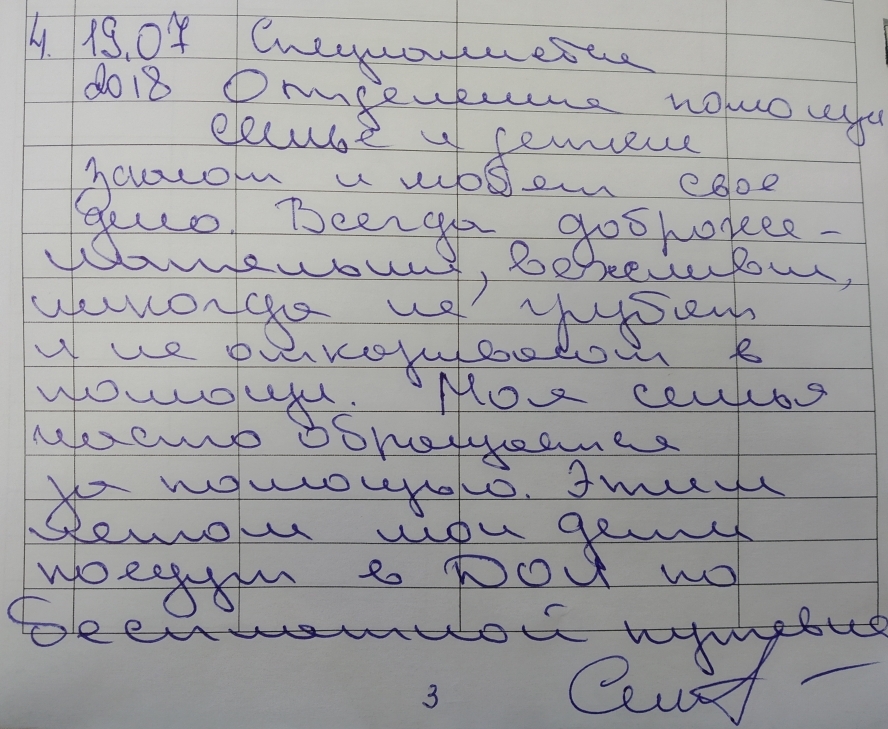 4. 19.07 Специалисты
2018 Отделения помощи
семье и детям
знают и любят свое
дело. Всегда доброже-
лательны, вежливы,
никогда не грубят
и не отказывают в
помощи. Моя семья
часто обращается
за помощью. Этим
летом мои дети
поедут в ДОЛ по
бесплатной путевке
3